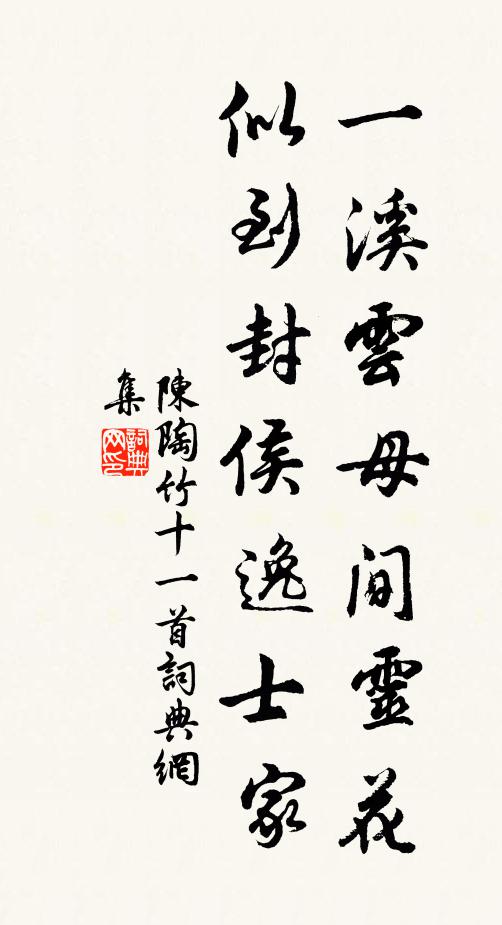 一溪雲母間靈花
似到封侯逸士家
陳陶竹十一首詞典網
集
詞典
网印